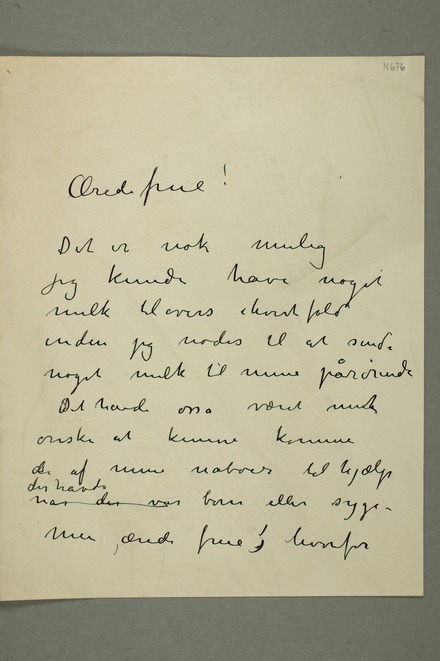 N 676
Ærede frue!
Det er nok mulig
jeg kunde have noget
melk tilovers ihvertfald
inden jeg nødes til at sende
noget melk til mine pårørende
Det havde osså været mit
ønske at kunne komme
de af mine naboer til hjælp
der havde
når der var born eller syge –
Men, ærede frue! hvorfor